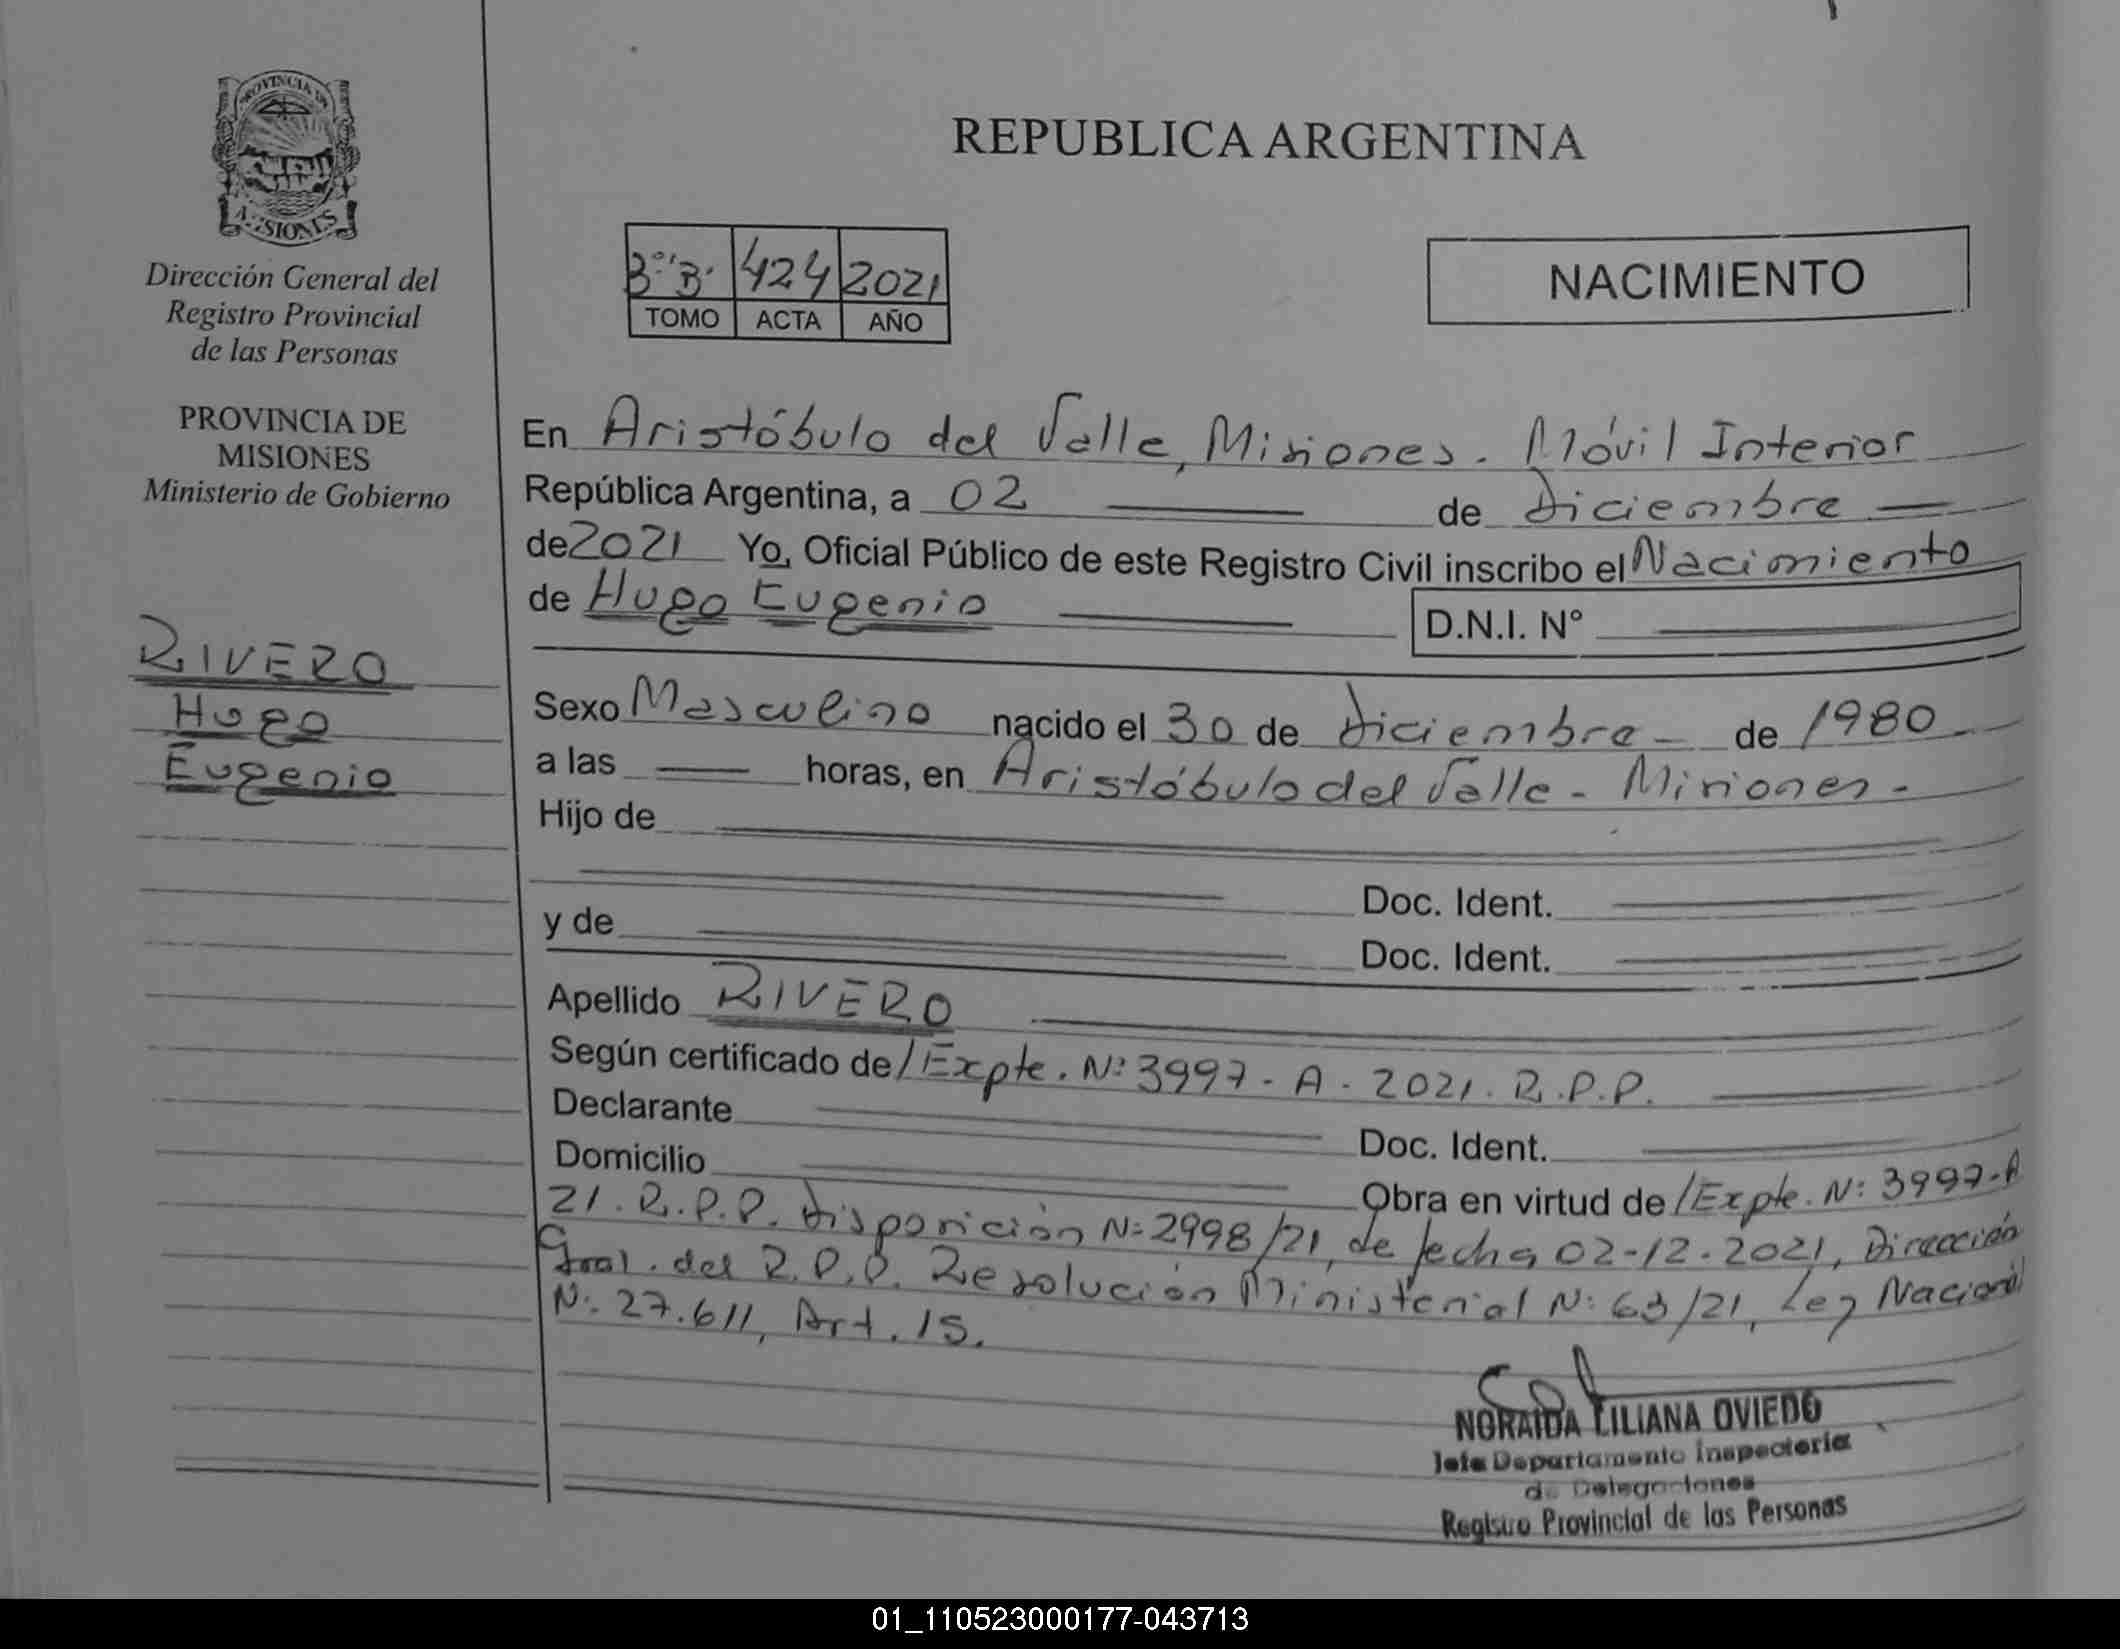 PROVINCIA DE
MISIONES
Dirección General del
Registro Provincial
de las Personas
PROVINCIA DE
MISIONES
Ministerio de Gobierno
RIVERO
Hugo
Eugenio
REPUBLICA ARGENTINA
3º"B" 424 2021
TOMO ACTA AÑO
NACIMIENTO
En Aristóbulo del Valle, Misiones. Móvil Interior
República Argentina, a 02 de Diciembre
de 2021 Yo, Oficial Público de este Registro Civil inscribo el Nacimiento
de Hugo Eugenio D.N.I. N°
Sexo Masculino nacido el 30 de Diciembre de 1980
a las horas, en Aristóbulo del Valle - Misiones.
Hijo de
Doc. Ident.
y de Doc. Ident.
Apellido RIVERO
Según certificado de/Expte. Nº 3997-A-2021. R.P.P.
Declarante Doc. Ident.
Domicilio Obra en virtud de/Expte. Nº 3997-A
21. R.P.P. Disposición Nº 2998/21, de fecha 02-12-2021, Dirección
Gral. del R.P.P. Resolución Ministerial Nº 63/21, Ley Nacional
Nº 27.611, Art. 15.
NORAIDA LILIANA OVIEDO
Jefe Departamento Inspectoría
de Delegaciones
Registro Provincial de las Personas
01_110523000177-043713